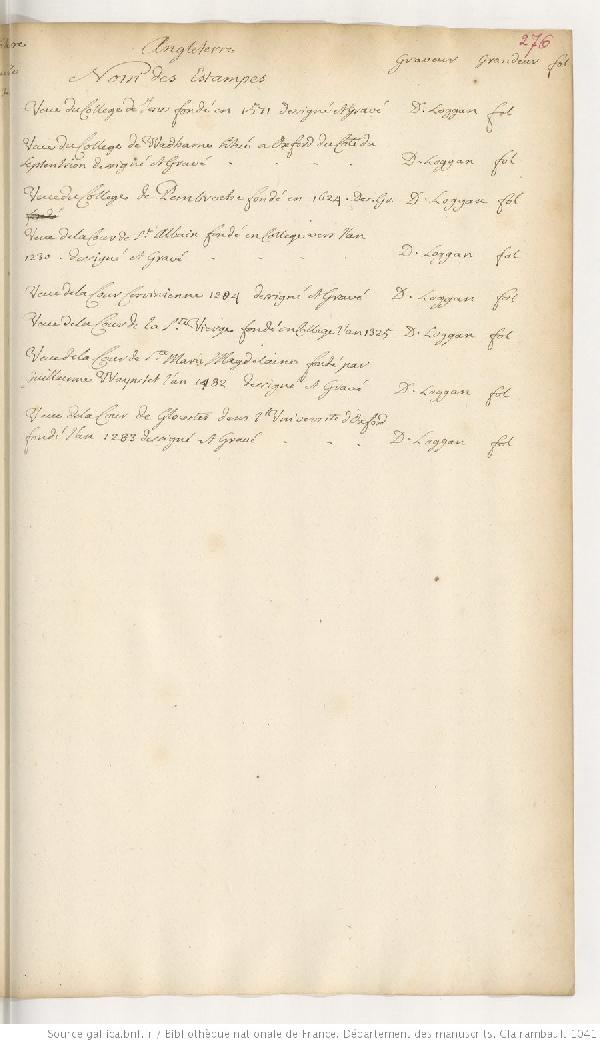 276
Angleterre
Nom des Estampes Graveur Grandeur fol
Veue du College de Jesus fondé en 1571 dessigné et Gravé D. Loggan fol
Veue du College de Wadhame située a Oxford du Côté du
Septentrion dessigné et Gravé D. Loggan fol
Veue de College de Pembroche fondé en 1624. Des. Gr. D. Loggan fol
fondé
Veue de la Cour de St. Albain fondé en College vers l'an
1230. dessigné et Gravé D. Loggan fol
Veue de la Cour Cervisienne 1284 dessigné et Gravé D. Loggan fol
Veue de la Cour de la Ste. Vierge fondé en College l'an 1325 D. Loggan fol
Veue de la Cour de Ste Marie Magdelaine fondé par
Guillaume Waynflet l'an 1482 dessigné et Gravé D. Loggan fol
Veue de la Cour de Glocester dans l'Université d'Oxford
fondé l'an 1283 dessigné et Gravé D. Loggan fol
Source gallica.bnf.fr / Bibliothèque nationale de France. Département des manuscrits. Clairambault 1041